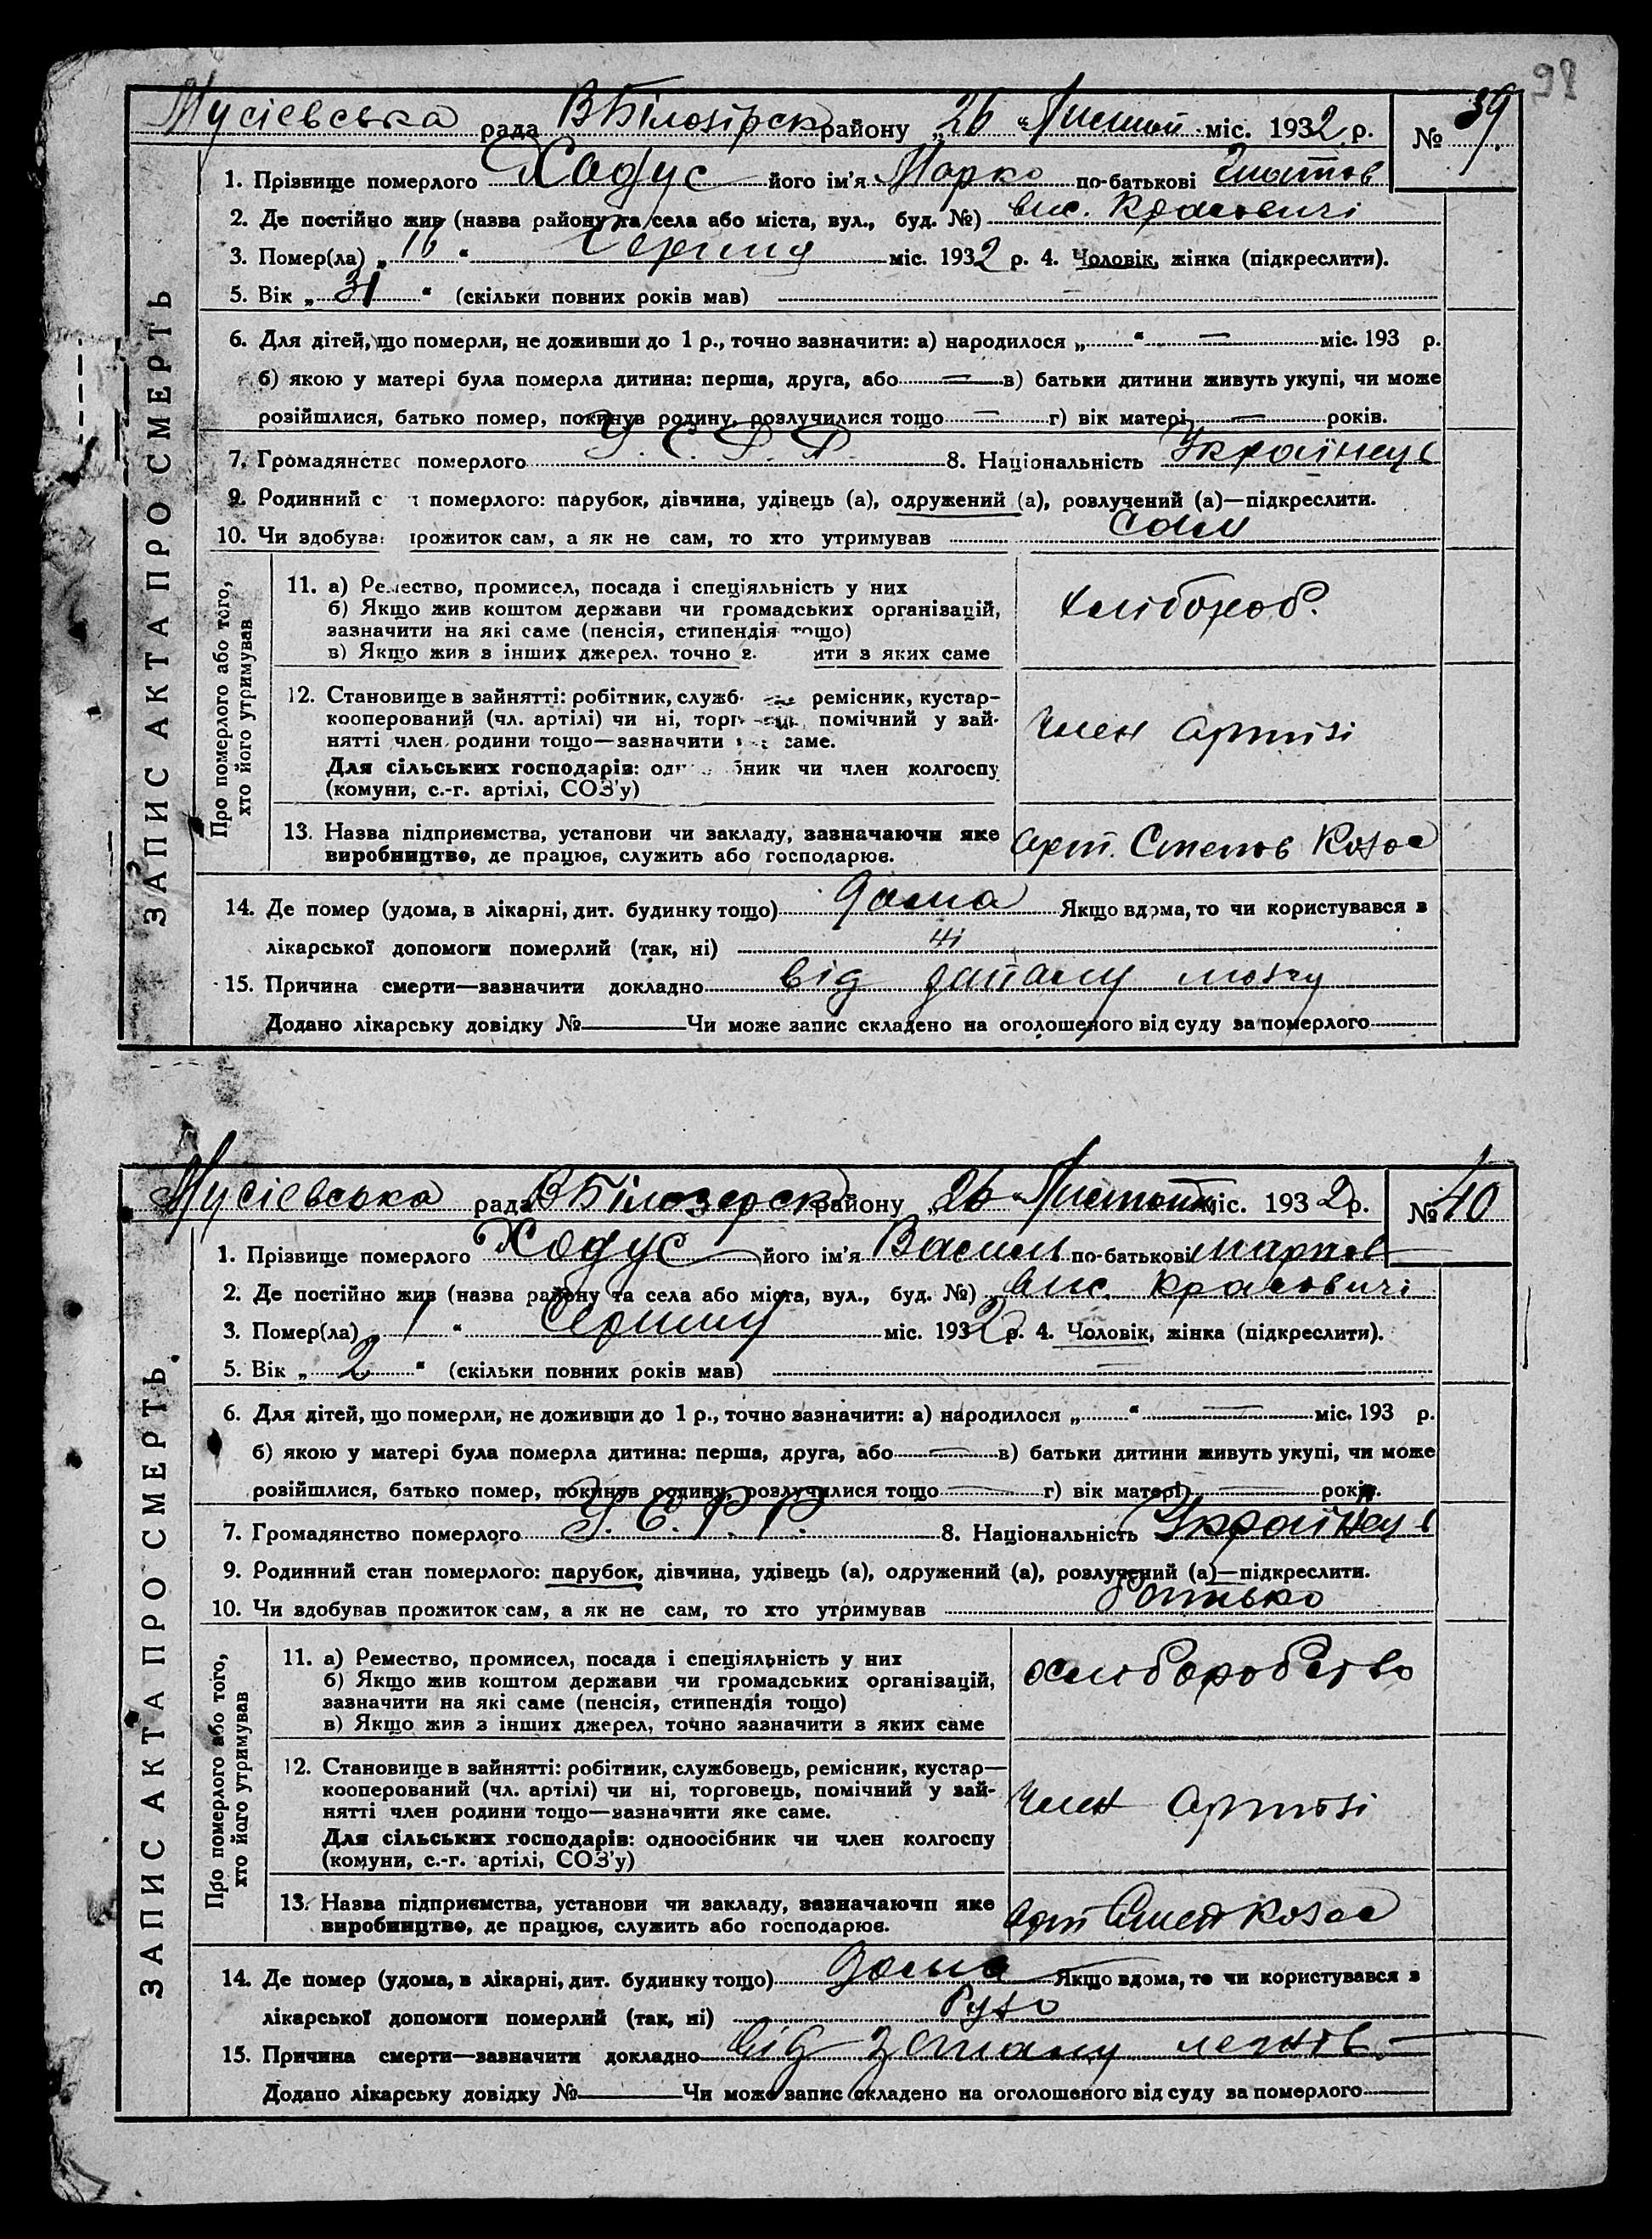 98
Мусіевська рада ВБілозірск району „26 “ Листоп. міс. 1932 р. № 39
1. Прізвище померлого Ходус його ім’я Марко по-батькові
2. Де постійно жив (назва району та села або міста, вул., буд. №) вис. Красовичі
3. Помер(ла) „ 16 “ Серпня міс. 1932 р. 4. Чоловік, жінка (підкреслити).
5. Вік „ 31 “ (скільки повних років мав)
6. Для дітей, що померли, не доживши до 1 р., точно зазначити: а) народилося „ “ — міс. 193 р.
б) якою у матері була померла дитина: перша, друга, або — в) батьки дитини живуть укупі, чи може
розійшлися, батько помер, покинув родину, розлучилися тощо — г) вік матері — років.
7. Громадянство померлого У. С. Р. Р. 8. Національність Українець
9. Родинний с н померлого: парубок, дівчина, удівець (а), одружений (а), розлучений (а)—підкреслити.
10. Чи здобува прожиток сам, а як не сам, то хто утримував сам
ЗАПИС АКТА ПРО СМЕРТЬ
Про померлого або того, хто його утримував
11. а) Ремество, промисел, посада і спеціяльність у них
б) Якщо жив коштом держави чи громадських організацій,
зазначити на які саме (пенсія, стипендія тощо)
в) Якщо жив з інших джерел. точно з ити з яких саме
хлібороб.
12. Становище в зайнятті: робітник, служб ремісник, кустар-
кооперований (чл. артілі) чи ні, торг помічний у зай-
нятті член родини тощо—зазначити яке саме.
Для сільських господарів: од бник чи член колгоспу
(комуни, с.-г. артілі, СОЗ’у)
член артілі
13. Назва підприємства, установи чи закладу, зазначаючи яке
виробництво, де працює, служить або господарює.
арт. Степов Козас
14. Де помер (удома, в лікарні, дит. будинку тощо) дома Якщо вдома, то чи користувався з
лікарської допомоги померлий (так, ні) ні
15. Причина смерти—зазначити докладно від запалу мозку
Додано лікарську довідку № Чи може запис складено на оголошеного від суду за померлого
Мусіевська рада ВБілозерск району „26 “ Листопад міс. 1932 р. № 40
1. Прізвище померлого Ходус його ім’я Васил по-батькові Марков
2. Де постійно жив (назва району та села або міста, вул., буд. №) вис. Красовичі
3. Помер(ла) „ 1 “ Серпня міс. 1932 р. 4. Чоловік, жінка (підкреслити).
5. Вік „ 2 “ (скільки повних років мав) —
6. Для дітей, що померли, не доживши до 1 р., точно зазначити: а) народилося „ “ — міс. 193 р.
б) якою у матері була померла дитина: перша, друга, або — в) батьки дитини живуть укупі, чи може
розійшлися, батько помер, покинув родину, розлучилися тощо — г) вік матері — років.
7. Громадянство померлого У. С. Р. Р. 8. Національність Українець
9. Родинний стан померлого: парубок, дівчина, удівець (а), одружений (а), розлучений (а)—підкреслити.
10. Чи здобував прожиток сам, а як не сам, то хто утримував батько
ЗАПИС АКТА ПРО СМЕРТЬ
Про померлого або того, хто його утримував
11. а) Ремество, промисел, посада і спеціяльність у них
б) Якщо жив коштом держави чи громадських організацій,
зазначити на які саме (пенсія, стипендія тощо)
в) Якщо жив з інших джерел, точно зазначити з яких саме
хліборобство
12. Становище в зайнятті: робітник, службовець, ремісник, кустар—
кооперований (чл. артілі) чи ні, торговець, помічний у зай-
нятті член родини тощо—зазначити яке саме.
Для сільських господарів: одноосібник чи член колгоспу
(комуни, с.-г. артілі, СОЗ’у)
член артілі
13. Назва підприємства, установи чи закладу, зазначаючи яке
виробництво, де працює, служить або господарює.
арт Степ Козас
14. Де помер (удома, в лікарні, дит. будинку тощо) дома Якщо вдома, то чи користувався з
лікарської допомоги померлий (так, ні)
15. Причина смерти—зазначити докладно від запалу легків
Додано лікарську довідку № Чи може запис складено на оголошеного від суду за померлого